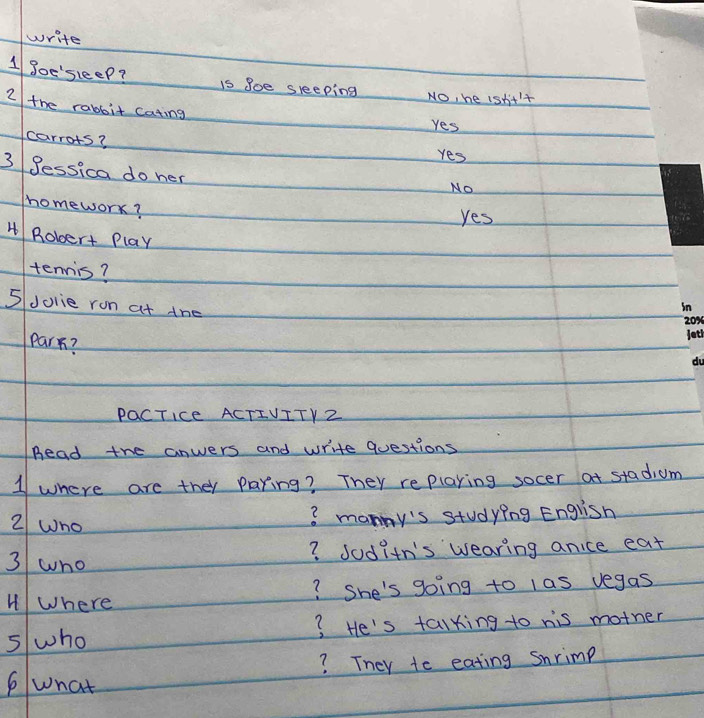 write
1 Joe'sleep? is Joe sleeping No, he isn't't
2 the rabbit eating Yes
carrots? Yes
3 Jessica do her No
homework? Yes
4 Robert Play
tennis?
5 Julie run at the
Park?
in
20%
jeth
du
PACTICE ACTIVITY 2
Read the anwers and write questions
1 where are they Paying? They re playing socer at stadium
2 who ? manny's studying English
3 who ? Judith's wearing anice eat
4 where ? She's going to las vegas
5 who ? He's talking to his mother
6 what ? They te eating shrimp